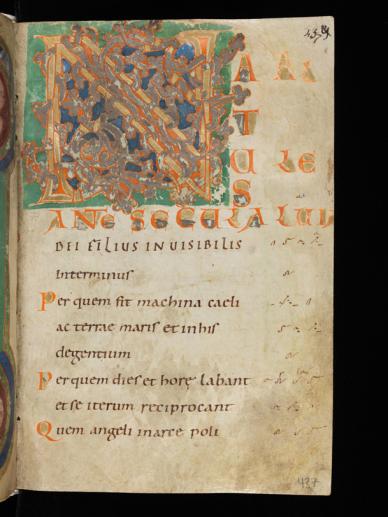 N A
T
U
S
ANTE SECULA
DEI FĪLIUS INUISIBILIS
interminus
Per quem fit machina caeli
ac terrae maris et in his
degentium
Per quem dies et horę labant
et se iterum reciprocant
Quem angeli in arce poli
437